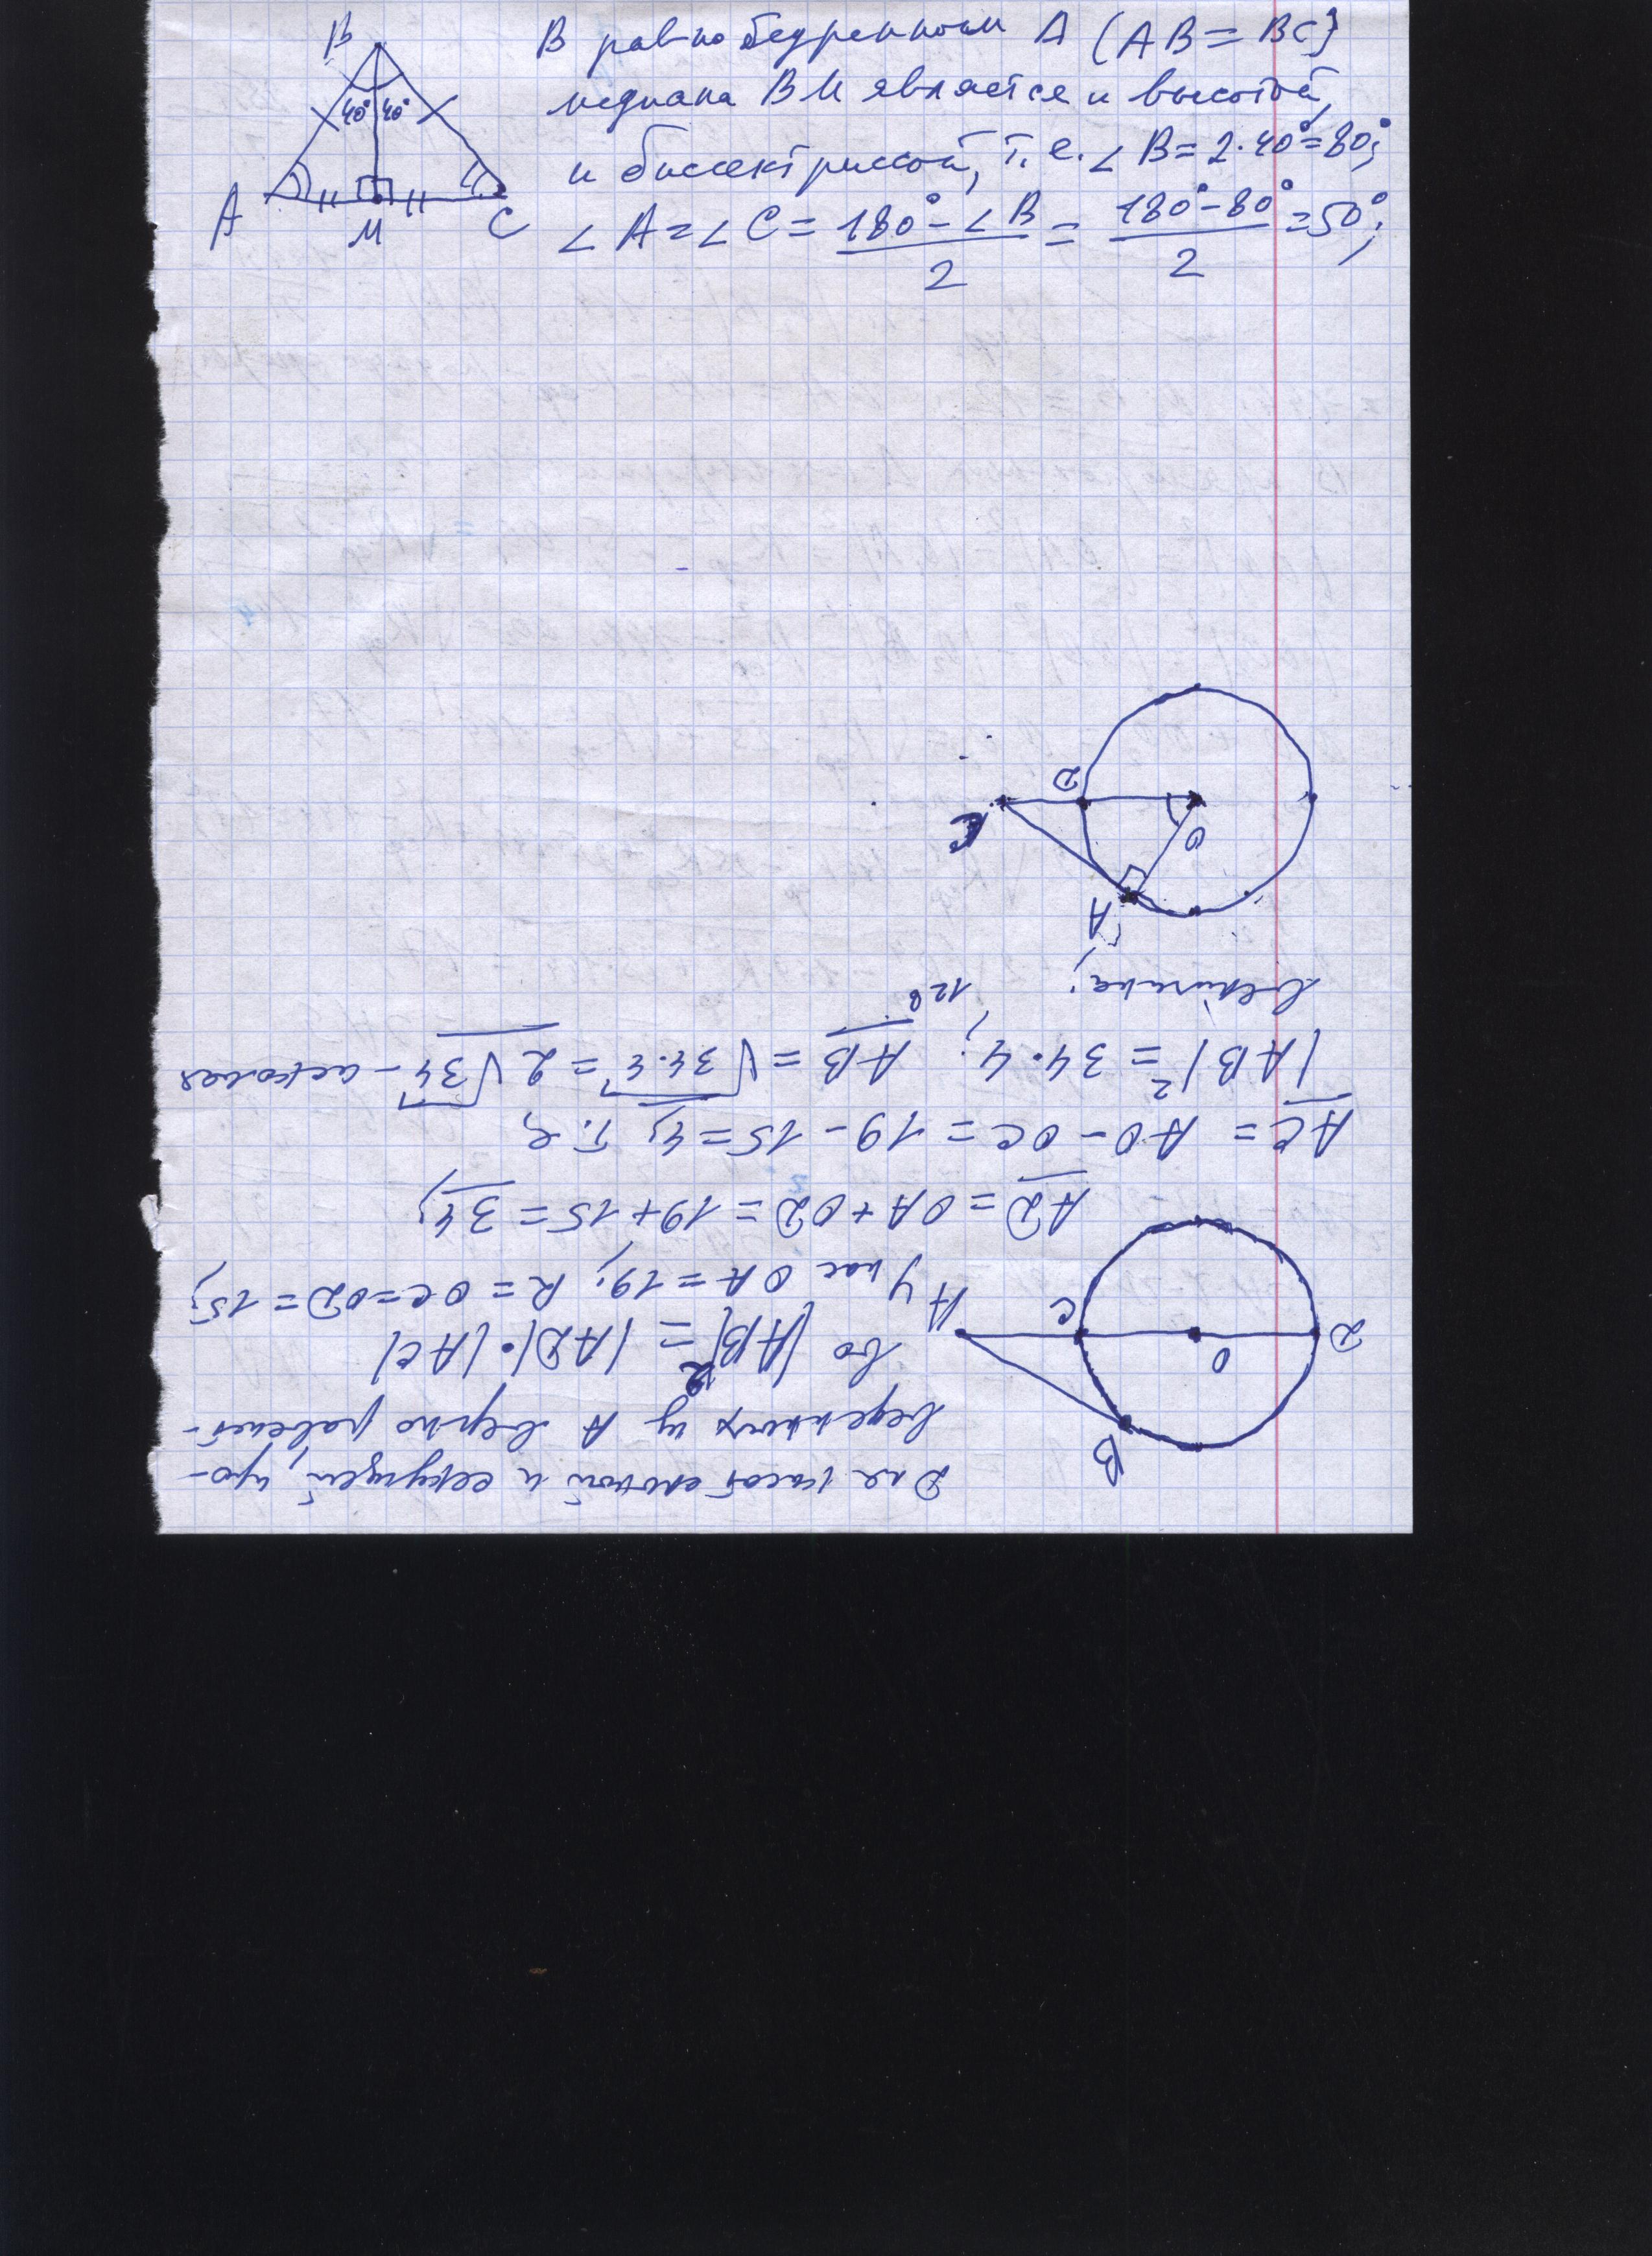 B
40° 40°
A M C
В равнобедренном Δ (AB = BC)
медиана BM является и высотой,
и биссектриссой, т. е. ∠B = 2·40° = 80°;
∠A = ∠C = 180° - ∠B / 2 = 180° - 80° / 2 = 50°;
Для касательной и секущей, про-
веденных из A верно равенст-
во |AB|² = |AD|·|AC|
У нас OA = 19; R = OC = OD = 15;
AD = OA + OD = 19 + 15 = 34;
AC = AO - OC = 19 - 15 = 4; т. е.
|AB|² = 34·4; AB = √34·4 = 2√34 - искомая
величина; 128
B
D O C A
A
O D C